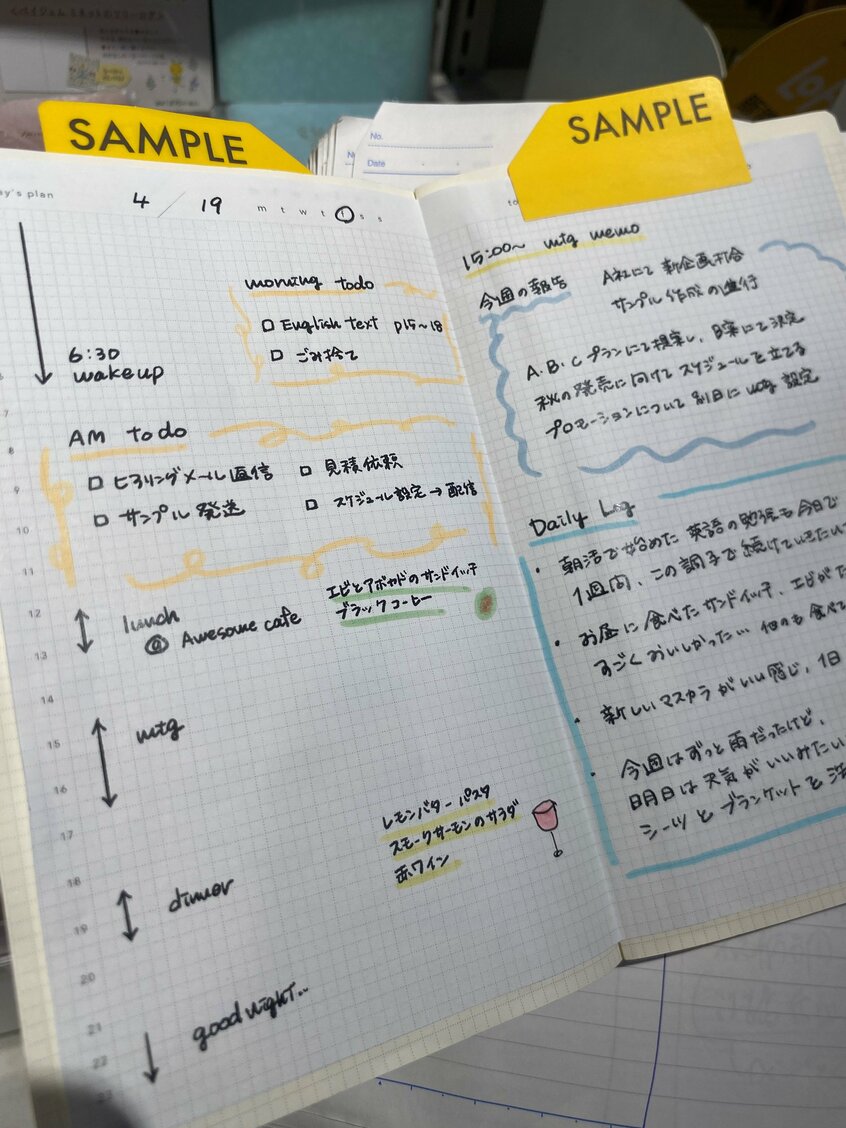 SAMPLE
SAMPLE
No.
Date
ay's plan
4 / 19
m t w t f s s
morning todo
□ English text p15~18
□ ごみ捨て
6:30
wakeup
AM todo
□ ヒアリングメール返信
□ 見積依頼
□ サンプル発送
□ スケジュール設定→配信
7
8
9
10
11
12
13
14
15
16
17
18
19
20
21
22
23
lunch
@ Awesome cafe
エビとアボカドのサンドイッチ
ブラックコーヒー
mtg
レモンバターパスタ
スモークサーモンのサラダ
赤ワイン
dinner
good night..
15:00~ mtg memo
今週の報告
A社にて新企画打合
サンプル作成の進行
A・B・Cプランにて提案し、B案にて決定
秋の発売に向けてスケジュールを立てる
プロモーションについて別日にmtg設定
Daily Log
・朝活で始めた英語の勉強も今日で
1週間、この調子で続けていきたい
・お昼に食べたサンドイッチ、エビがた
すごくおいしかった… 他のも食べて
・新しいマスカラがいい感じ、1日
・今週はずっと雨だったけど、
明日は天気がいいみたい
シーツとブランケットを洗